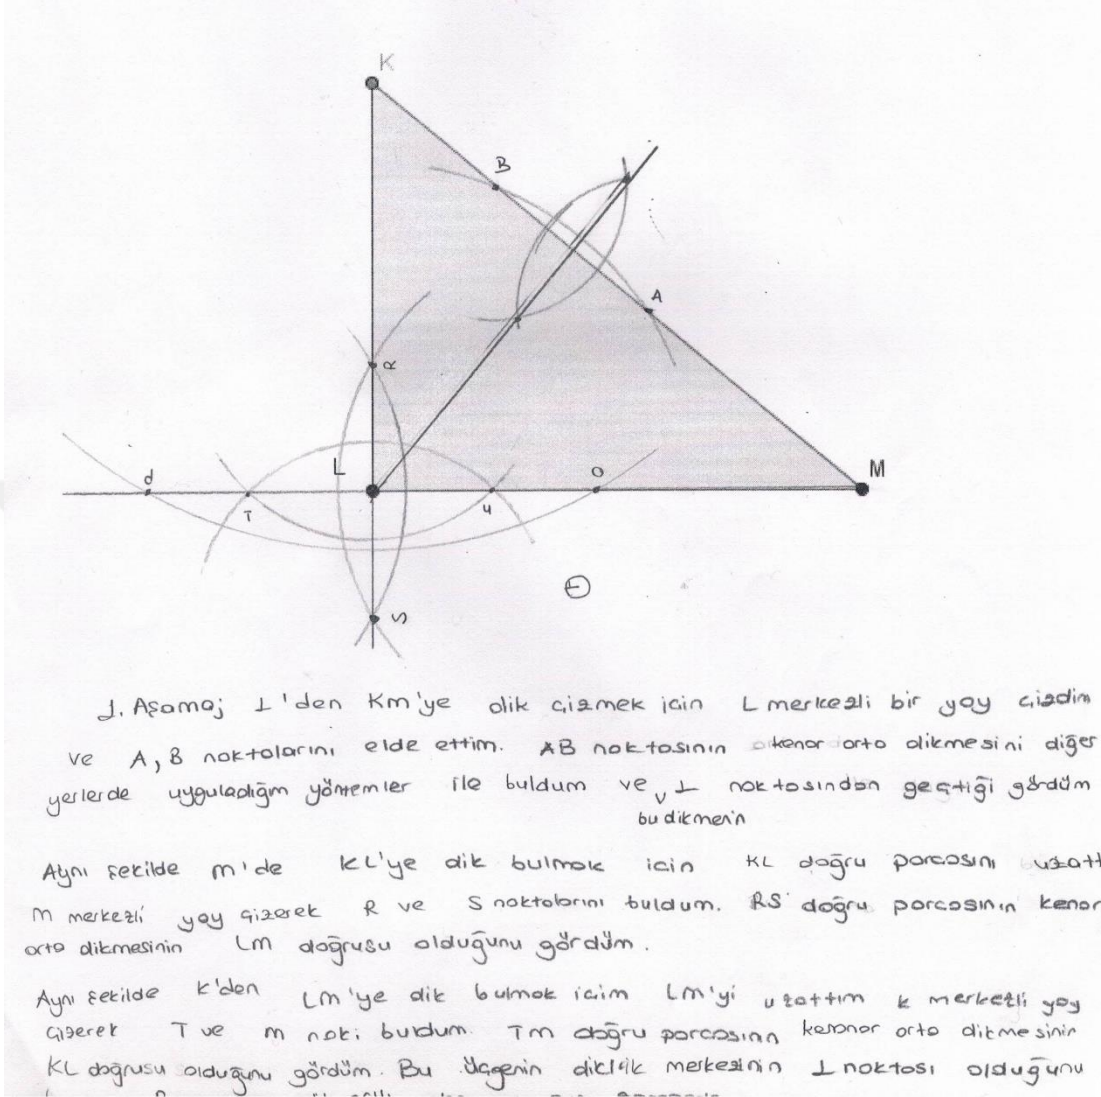 K
B
A
R
L
d
T
4
O
M
S
1. Aşamaj L'den KM'ye dik çizmek için L merkezli bir yay çizdim
ve A, B noktalarını elde ettim. AB noktasının kenar orta dikmesini diğer
yerlerde uyguladığım yöntemler ile buldum ve bu dikmenin L noktasından geçtiği gördüm
Aynı şekilde M'de KL'ye dik bulmak için KL doğru parcasını uzatt
M merkezli yay çizerek R ve S noktalarını buldum. RS doğru parcasının kenar
orta dikmesinin LM doğrusu olduğunu gördüm.
Aynı şekilde K'den LM'ye dik bulmak içim LM'yi uzattım K merkezli yay
çizerek T ve m nokt buldum. Tm doğru parcasının kenar orta dikmesinin
KL doğrusu olduğunu gördüm. Bu üçgenin diklik merkezinin L noktası olduğunu